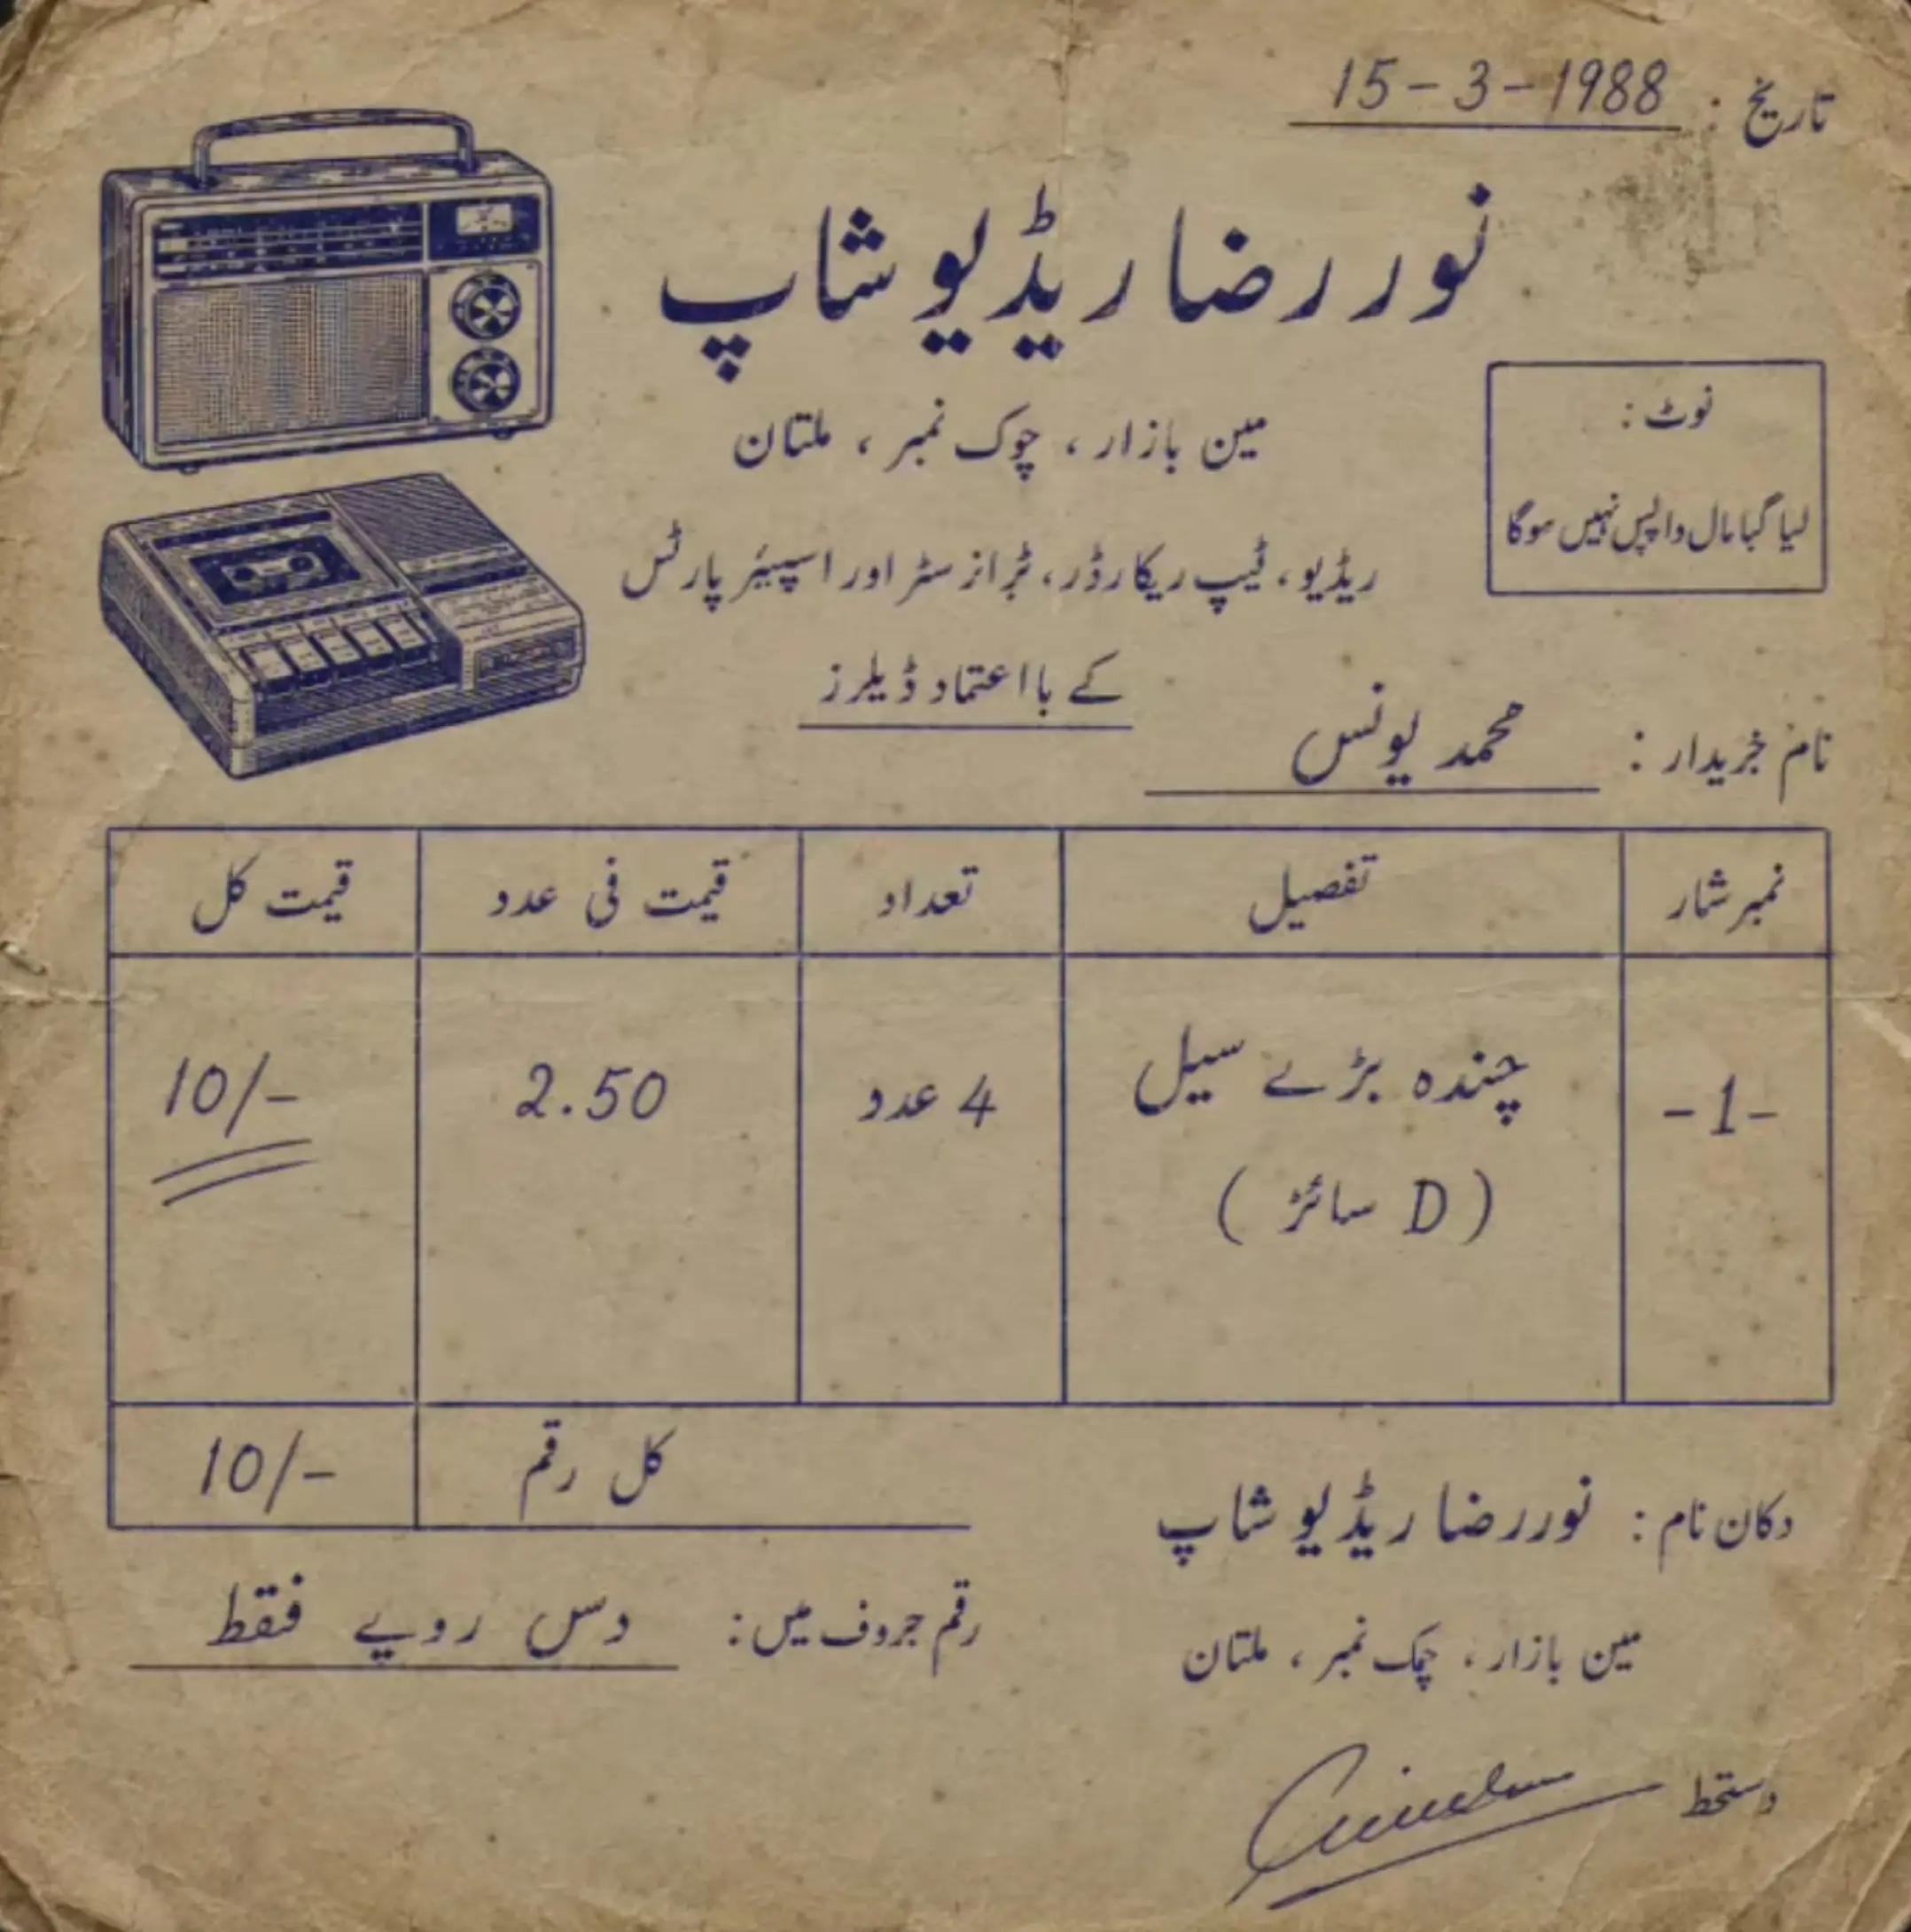 تاریخ : 15-3-1988
نور رضا ریڈیو شاپ
مین بازار ، چوک نمبر ، ملتان
نوٹ :
لیا گیا مال واپس نہیں ہوگا
ریڈیو، ٹیپ ریکارڈر، ٹرانزسٹر اور اسپیئر پارٹس
کے بااعتماد ڈیلرز
نام خریدار : محمد یونس
نمبر شمار تفصیل تعداد قیمت فی عدد قیمت کل
-1- چندہ بڑے سیل 4 عدد 2.50 10/-
( D سائز )
کل رقم 10/-
دکان نام : نور رضا ریڈیو شاپ
مین بازار ، چمک نمبر ، ملتان
رقم جروف میں : دس روپے فقط
دستخط